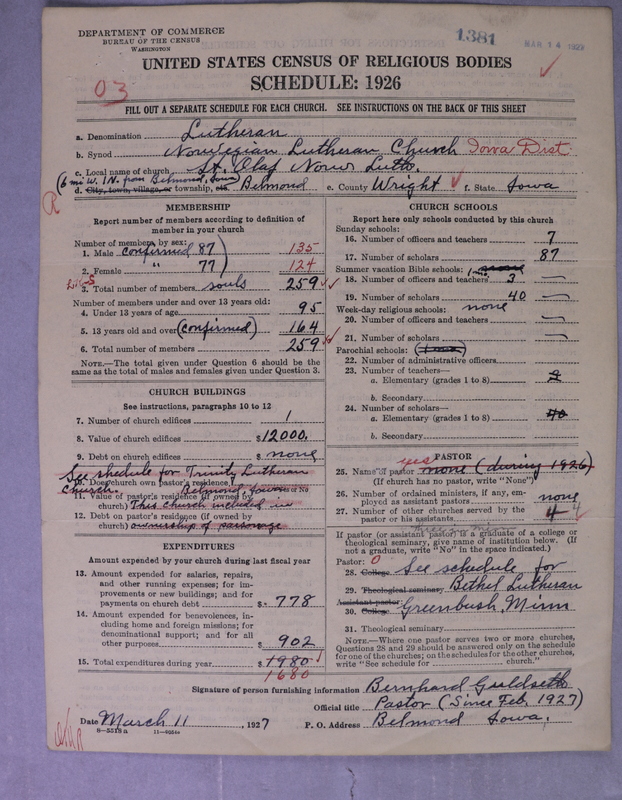 DEPARTMENT OF COMMERCE
BUREAU OF THE CENSUS
WASHINGTON
1381
MAR 14 1927
UNITED STATES CENSUS OF RELIGIOUS BODIES
SCHEDULE: 1926
03
FILL OUT A SEPARATE SCHEDULE FOR EACH CHURCH. SEE INSTRUCTIONS ON THE BACK OF THIS SHEET
a. Denomination Lutheran
b. Synod Norwegian Lutheran Church Iowa Dist
c. Local name of church St. Olaf Norw Luth.
(6 mi W. 1 N. from Belmond, Iowa)
d. City, town, village, or township, etc. Belmond e. County Wright f. State Iowa
R
MEMBERSHIP
Report number of members according to definition of member in your church
Number of members, by sex:
1. Male confirmed 87 135
2. Female " 77 124
3. Total number of members souls 259
Number of members under and over 13 years old:
4. Under 13 years of age 95
5. 13 years old and over (confirmed) 164
6. Total number of members 259
NOTE.—The total given under Question 6 should be the same as the total of males and females given under Question 3.
CHURCH BUILDINGS
See instructions, paragraphs 10 to 12
7. Number of church edifices 1
8. Value of church edifices $12000.
9. Debt on church edifices $ none
See shedule for Trinity Lutheran
10. Does church own pastor's residence?
Church. Belmond Iowa
11. Value of pastor's residence (if owned by church) This church included in
12. Debt on pastor's residence (if owned by church) ownership of parsonage
EXPENDITURES
Amount expended by your church during last fiscal year
13. Amount expended for salaries, repairs, and other running expenses; for improvements or new buildings; and for payments on church debt $ 778
14. Amount expended for benevolences, including home and foreign missions; for denominational support; and for all other purposes $ 902
15. Total expenditures during year $ 1980
1680
CHURCH SCHOOLS
Report here only schools conducted by this church
Sunday schools:
16. Number of officers and teachers 7
17. Number of scholars 87
Summer vacation Bible schools:
18. Number of officers and teachers 3 —
19. Number of scholars 40 —
Week-day religious schools: none
20. Number of officers and teachers —
21. Number of scholars —
Parochial schools:
22. Number of administrative officers
23. Number of teachers—
a. Elementary (grades 1 to 8)
b. Secondary
24. Number of scholars—
a. Elementary (grades 1 to 8) 40
b. Secondary
PASTOR
yes
25. Name of pastor none (during 1926)
(If church has no pastor, write "None")
26. Number of ordained ministers, if any, employed as assistant pastors none
27. Number of other churches served by the pastor or his assistants 4
If pastor (or assistant pastor) is a graduate of a college or theological seminary, give name of institution below. (If not a graduate, write "No" in the space indicated.)
Pastor: 0
28. College See schedule for
29. Theological seminary Bethel Lutheran
Assistant pastor:
30. College Greenbush, Minn
31. Theological seminary
NOTE.—Where one pastor serves two or more churches, Questions 28 and 29 should be answered only on the schedule for one of the churches; on the schedules for the other churches, write "See schedule for church."
Signature of person furnishing information Bernhard Guldseth
Official title Pastor (Since Feb. 1927)
Date March 11, 1927 P. O. Address Belmond Iowa.
8—5518a 11—9054